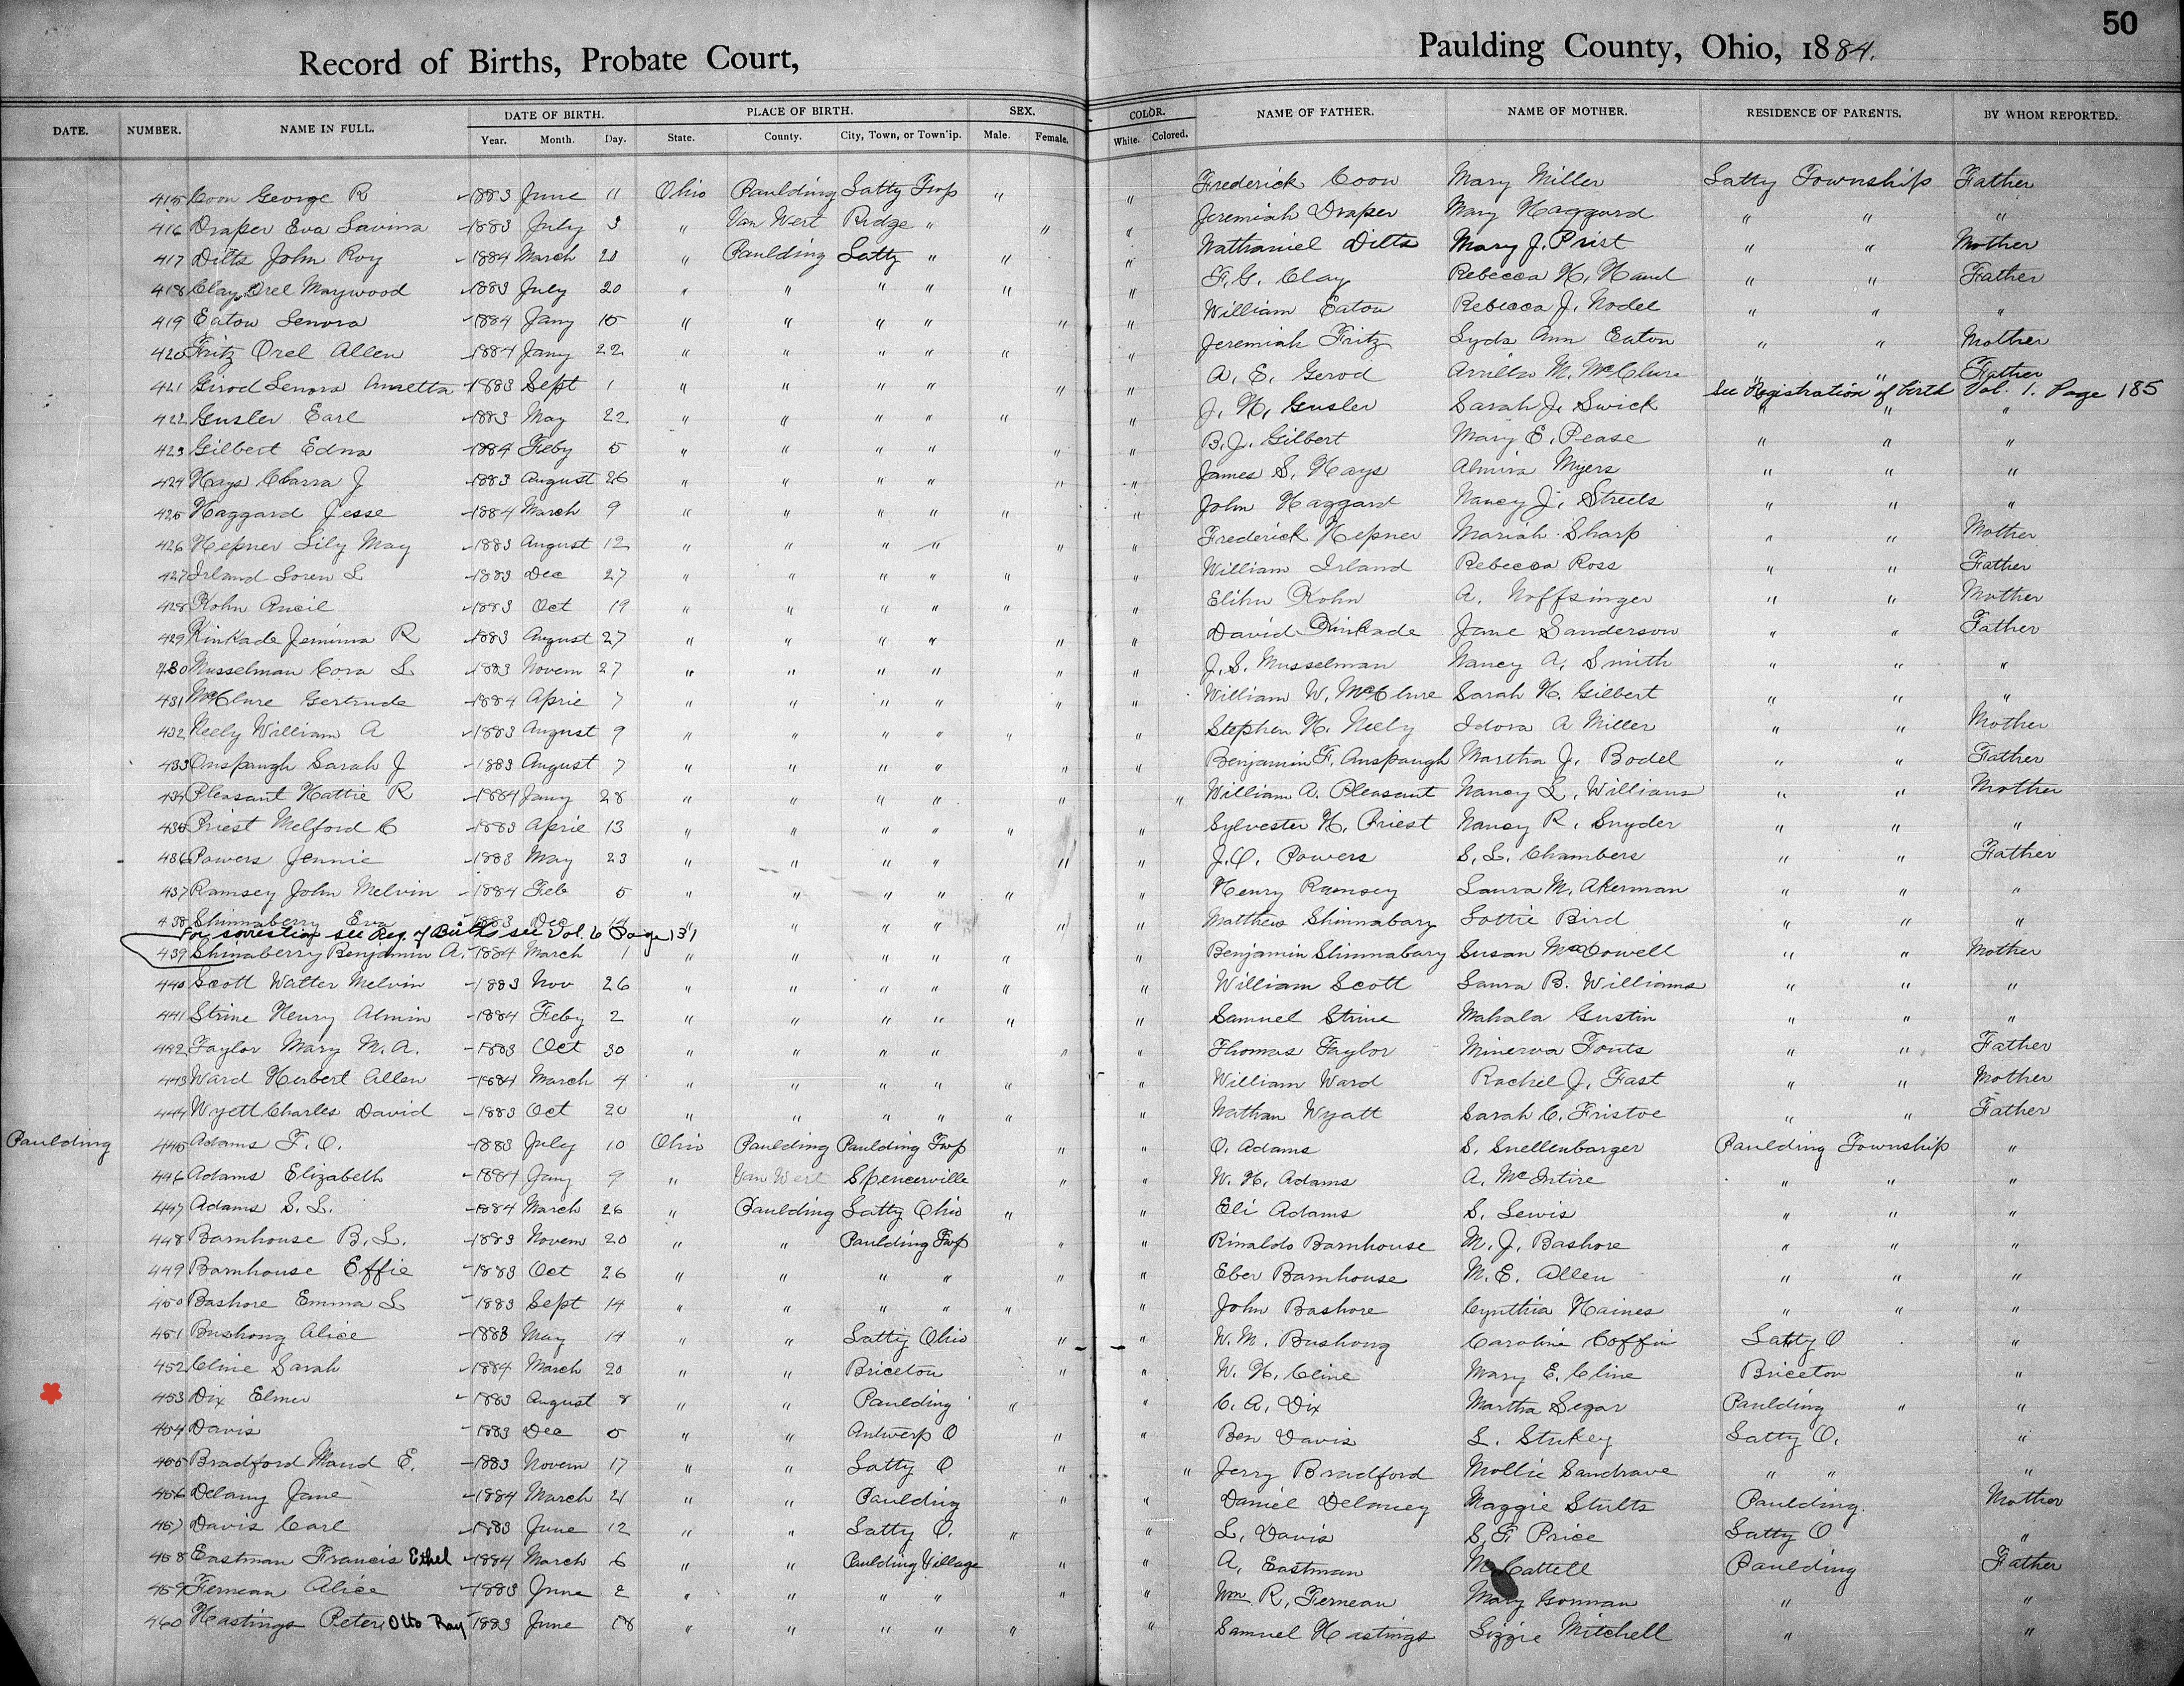 50
Record of Births, Probate Court, Paulding County, Ohio, 1884.
DATE. NUMBER. NAME IN FULL. DATE OF BIRTH. PLACE OF BIRTH. SEX. COLOR. NAME OF FATHER. NAME OF MOTHER. RESIDENCE OF PARENTS. BY WHOM REPORTED.
Year. Month. Day. State. County. City, Town, or Town'ip. Male. Female. White. Colored.
415 Coon George R 1883 June 11 Ohio Paulding Latty Twp " " Frederick Coon Mary Miller Latty Township Father
416 Draper Eva Lavina 1883 July 3 " Van Wert Ridge " " " Jeremiah Draper Mary Haggard " " "
417 Dilts John Roy 1884 March 20 " Paulding Latty " " " Nathaniel Dilts Mary J. Prist " " Mother
418 Clay Orel Maywood 1883 July 20 " " " " " " F. G. Clay Rebecca H. Hand " " Father
419 Eaton Lenora 1884 Jany 15 " " " " " " William Eaton Rebecca J. Nodel " " "
420 Fritz Orel Allen 1884 Jany 22 " " " " " " Jeremiah Fritz Lyda Ann Eaton " " Mother
421 Girod Lenora Annetta 1883 Sept 1 " " " " " " A. E. Gerod Arrilla M. McClure " " Father
See Registration of birth Vol 1. Page 185
422 Gusler Earl 1883 May 22 " " " " " " J. H. Gusler Sarah J. Swick " " "
423 Gilbert Edna 1884 Feby 5 " " " " " " B. J. Gilbert Mary E. Pease " " "
424 Hays Clarra J 1883 August 26 " " " " " " James S. Hays Almira Myers " " "
425 Haggard Jesse 1884 March 9 " " " " " " John Haggard Nancy J. Streets " " "
426 Hepner Lily May 1883 August 12 " " " " " " Frederick Hepner Mariah Sharp " " Mother
427 Irland Loren L 1883 Dec 27 " " " " " " William Irland Rebecca Ross " " Father
428 Kohn Ancil 1883 Oct 19 " " " " " " Elihu Kohn A. Noffsinger " " Mother
429 Kinkade Jemima R 1883 August 27 " " " " " " David Kinkade Jane Sanderson " " Father
430 Musselman Cora L 1883 Novem 27 " " " " " " J. S. Musselman Nancy A. Smith " " "
431 McClure Gertrude 1884 April 7 " " " " " " William W. McClure Sarah H. Gilbert " " "
432 Neely William A 1883 August 9 " " " " " " Stephen H. Neely Idora A Miller " " Mother
433 Onspaugh Sarah J 1883 August 7 " " " " " " Benjamin F. Anspaugh Martha J. Bodel " " Father
434 Pleasant Hattie R 1884 Jany 28 " " " " " " William A. Pleasant Nancy L. Williams " " Mother
435 Priest Melford C 1883 April 13 " " " " " " Sylvester H. Priest Nancy R. Snyder " " "
436 Powers Jennie 1883 May 23 " " " " " " J. O. Powers S. L. Chambers " " Father
437 Ramsey John Melvin 1884 Feb 5 " " " " " " Henry Ramsey Laura M. Akerman " " "
438 Shinnaberry Eva 1883 Dec 14 " " " " " " Matthew Shinnabary Lottie Bird " " "
For correction see Reg. of Births see Vol. 6 Page 131
439 Shinaberry Benjamin A. 1884 March 1 " " " " " " Benjamin Shinnabary Susan McDowell " " Mother
440 Scott Walter Melvin 1883 Nov 26 " " " " " " William Scott Laura B. Williams " " "
441 Strine Henry Almin 1884 Feby 2 " " " " " " Samuel Strine Mahala Gustin " " "
442 Taylor Mary M. A. 1883 Oct 30 " " " " " " Thomas Taylor Minerva Fouts " " Father
443 Ward Herbert Allen 1884 March 4 " " " " " " William Ward Rachel J. Fast " " Mother
444 Wyett Charles David 1883 Oct 20 " " " " " " Nathan Wyatt Sarah C. Fristoe " " Father
Paulding 445 Adams F. O. 1883 July 10 Ohio Paulding Paulding Twp " " O. Adams S. Snellenbarger Paulding Township "
446 Adams Elizabeth 1884 Jany 9 " Van Wert Spencerville " " W. H. Adams A. McIntire " " "
447 Adams S. L. 1884 March 26 " Paulding Latty Ohio " " Eli Adams S. Lewis " " "
448 Barnhouse B. L. 1883 Novem 20 " " Paulding Twp " " Rinaldo Barnhouse M. J. Bashore " " "
449 Barnhouse Effie 1883 Oct 26 " " " " " " Eber Barnhouse M. E. Allen " " "
450 Bashore Emma L 1883 Sept 14 " " " " " " John Bashore Cynthia Haines " " "
451 Bushong Alice 1883 May 14 " " Latty Ohio " " W. M. Bushong Caroline Coffin Latty O "
452 Cline Sarah 1884 March 20 " " Briceton " " W. H. Cline Mary E. Cline Briceton "
453 Dix Elmer 1883 August 8 " " Paulding " " C. A. Dix Martha Segar Paulding " "
454 Davis 1883 Dec 5 " " Antwerp O " " Ben Davis L. Stukey Latty O. "
455 Bradford Maud E. 1883 Novem 17 " " Latty O " " Jerry Bradford Mollie Sandrave " " "
456 Delany Jane 1884 March 21 " " Paulding " " Daniel Delaney Maggie Stults Paulding. Mother
457 Davis Carl 1883 June 12 " " Latty O. " " L. Davis S. F. Price Latty O "
458 Eastman Francis Ethel 1884 March 6 " " Paulding Village " " A. Eastman M Cattell Paulding Father
459 Fernean Alice 1883 June 2 " " " " " " Wm R. Fernean Mary Gorman " "
460 Hastings Peter Otto Ray 1883 June 18 " " " " " " Samuel Hastings Lizzie Mitchell " "